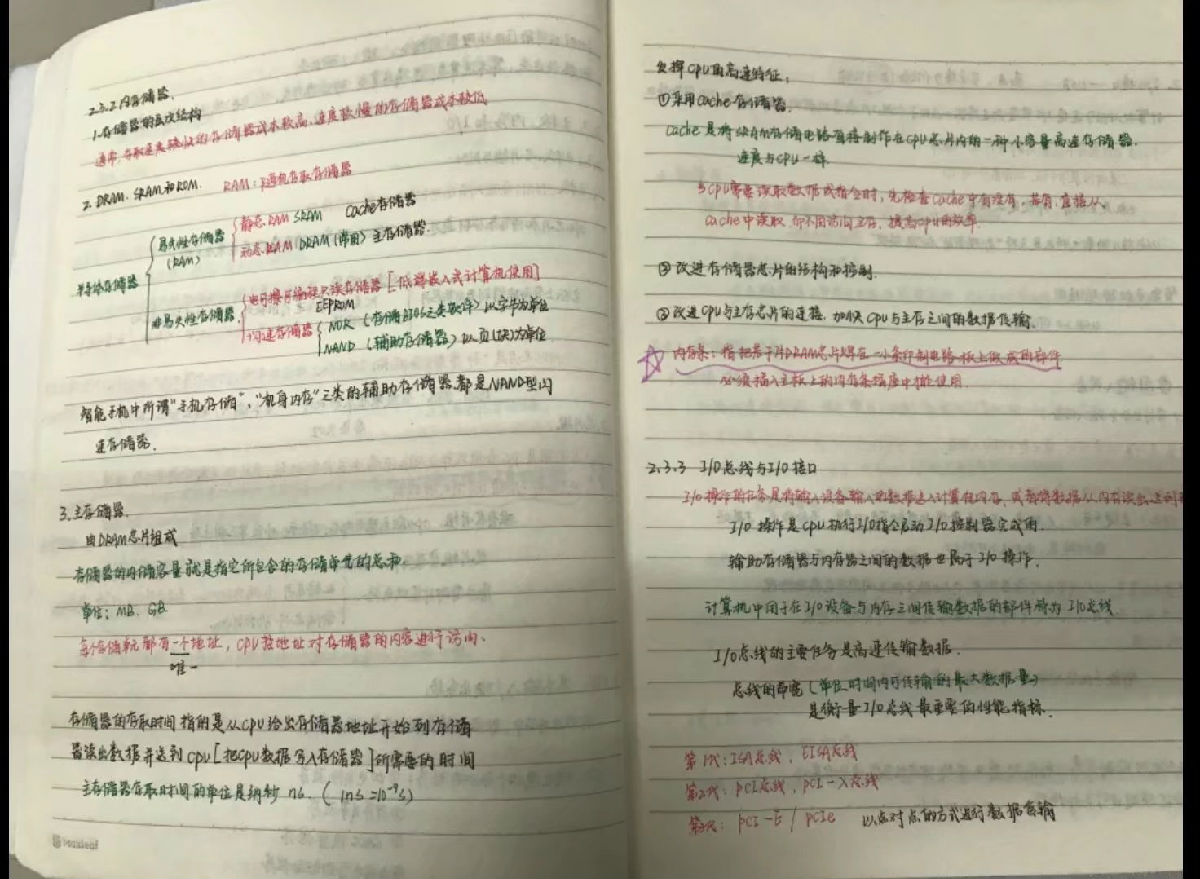 2.3.2 内存储器.
1.存储器的层次结构
通常,存取速度较快的存储器成本较高、速度较慢的存储器成本较低
2. DRAM. SRAM和ROM. RAM:随机存取存储器
半导体存储器
易失性存储器 (RAM)
静态RAM SRAM Cache存储器
动态RAM(DRAM(常用)主存储器.
非易失性存储器
电可擦可编程只读存储器[低端嵌入式计算机使用]
EEPROM
闪速存储器
NOR (存储BIOS之类软件)以字节为单位
NAND (辅助存储器)以页(块)为单位
智能手机中所谓"手机存储"、"机身内存"之类的辅助存储器都是NAND型闪
速存储器.
3.主存储器.
由DRAM芯片组成
存储器的存储容量就是指它所包含的存储单元的总和
单位:MB. GB
每存储单元都有一个地址,CPU按地址对存储器的内容进行访问.
唯一
存储器的存取时间指的是从CPU给出存储器地址开始到存储
器读出数据并送到CPU[把CPU数据写入存储器]所需要的时间
主存储器存取时间的单位是纳秒 ns. ( 1ns=10⁻⁹s)
发挥CPU的高速特征:
①采用Cache存储器.
Cache是将SRAM存储电路直接制作在CPU芯片内的一种小容量高速存储器.
速度与CPU一样.
当CPU需要读取数据或指令时,先检查Cache中有没有.若有,直接从
Cache中读取,而不用访问主存,提高CPU的效率.
②改进存储器芯片的结构和控制.
③改进CPU与主存芯片的连接.加快CPU与主存之间的数据传输.
☆ 内存条:指把若干片DRAM芯片焊在一小条印制电路板上做成的部件
必须插入主板上的内存条插座中才能使用.
2.3.3 I/O总线与I/O接口
I/O操作的任务是将输入设备输入的数据送入计算机内存,或者将数据从内存读出送到
I/O 操作是CPU执行I/O指令启动I/O控制器完成的.
辅助存储器与内存器之间的数据也属于I/O操作.
计算机中用于在I/O设备与内存之间传输数据的部件称为I/O总线.
I/O总线的主要任务是高速传输数据.
总线的带宽(单位时间内可传输的最大数据量)
是衡量I/O总线最重要的性能指标.
第1代:ISA总线、EISA总线
第2代:PCI总线,PCI-X总线
第3代: PCI-E / PCIe 以点对点的方式进行数据传输